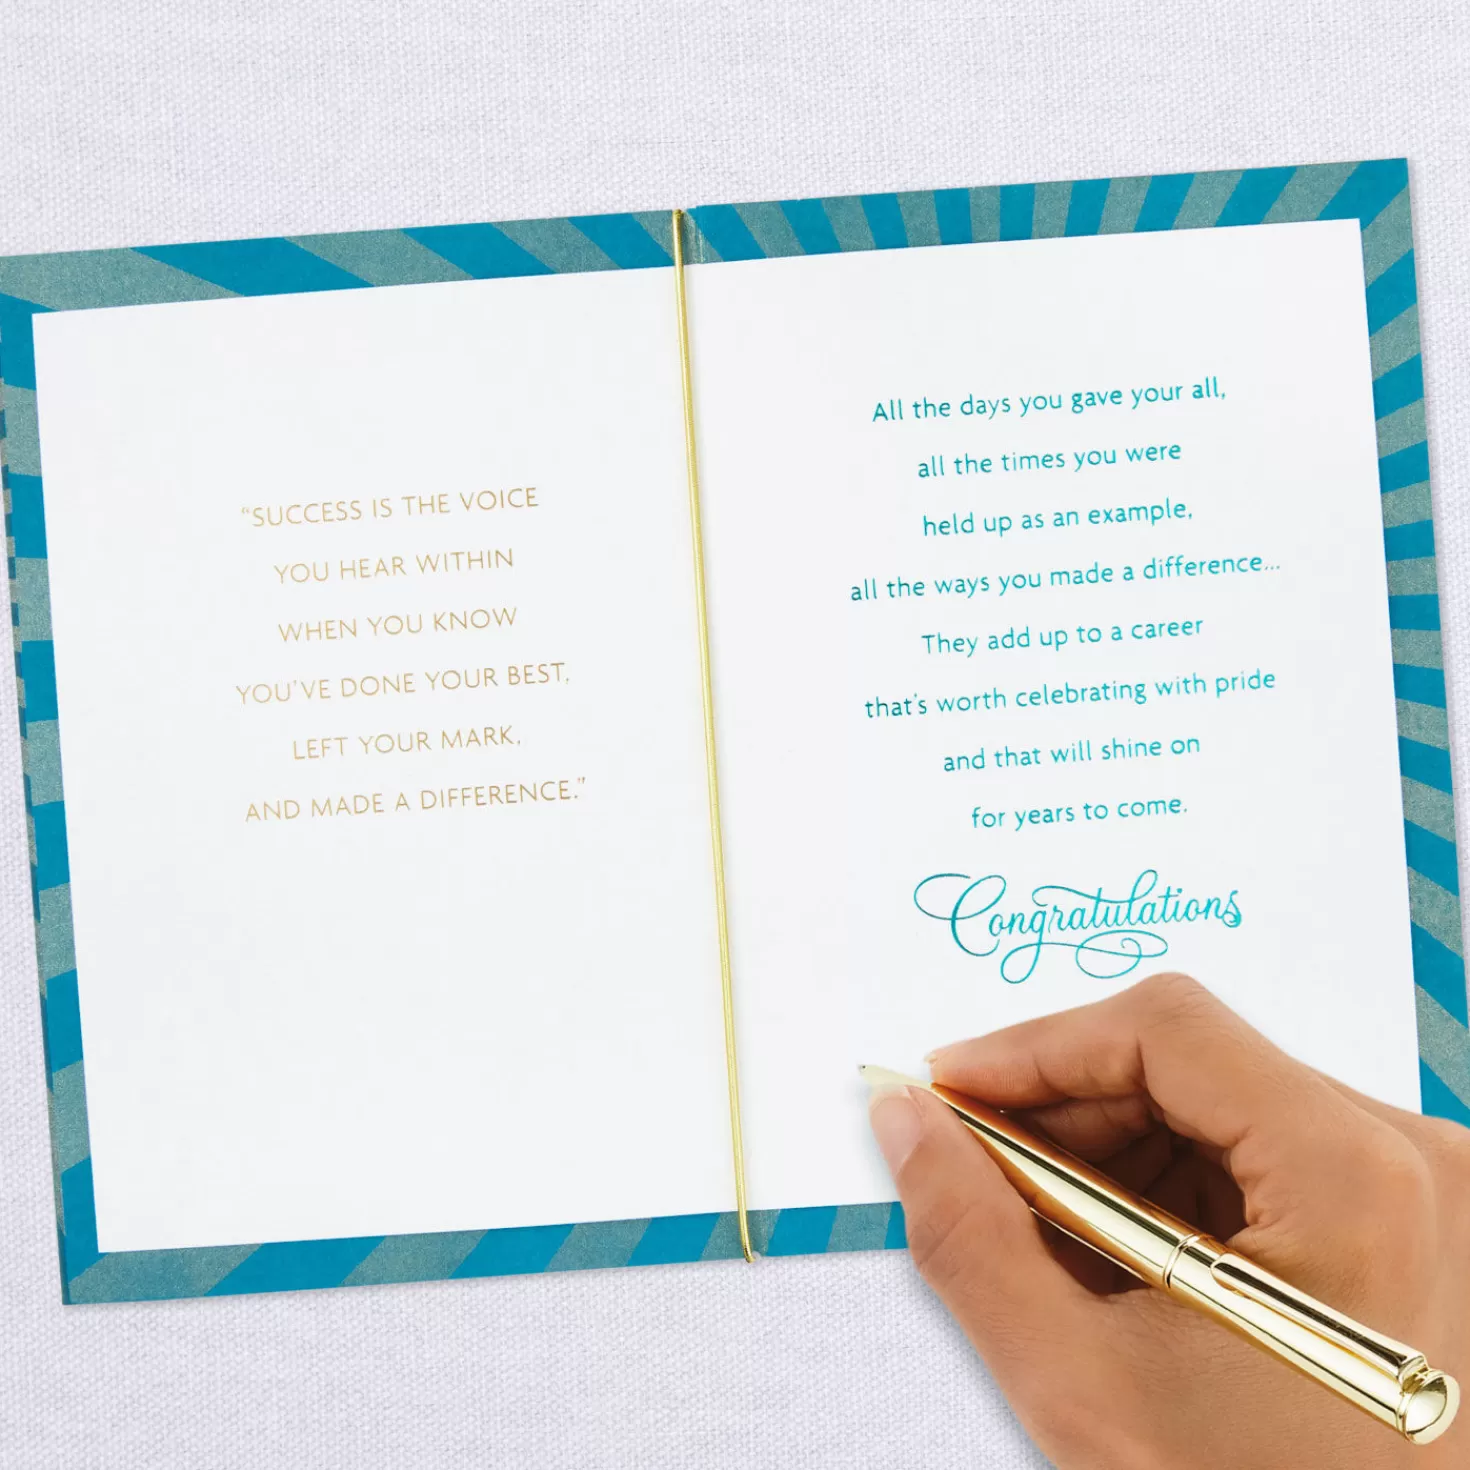 “SUCCESS IS THE VOICE
YOU HEAR WITHIN
WHEN YOU KNOW
YOU’VE DONE YOUR BEST,
LEFT YOUR MARK,
AND MADE A DIFFERENCE.”
All the days you gave your all,
all the times you were
held up as an example,
all the ways you made a difference...
They add up to a career
that’s worth celebrating with pride
and that will shine on
for years to come.
Congratulations